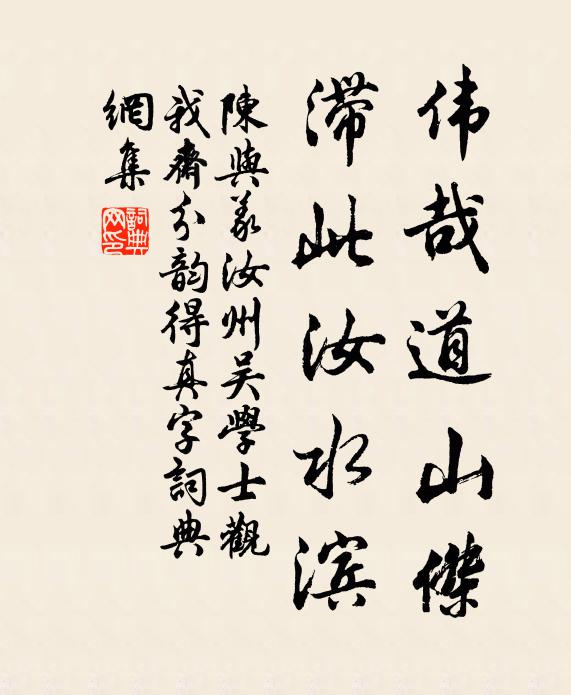 伟哉道山傑
滞此汝水滨
陳與義汝州吴學士觀
我齋分韵得真字詞典
網集
詞典网印